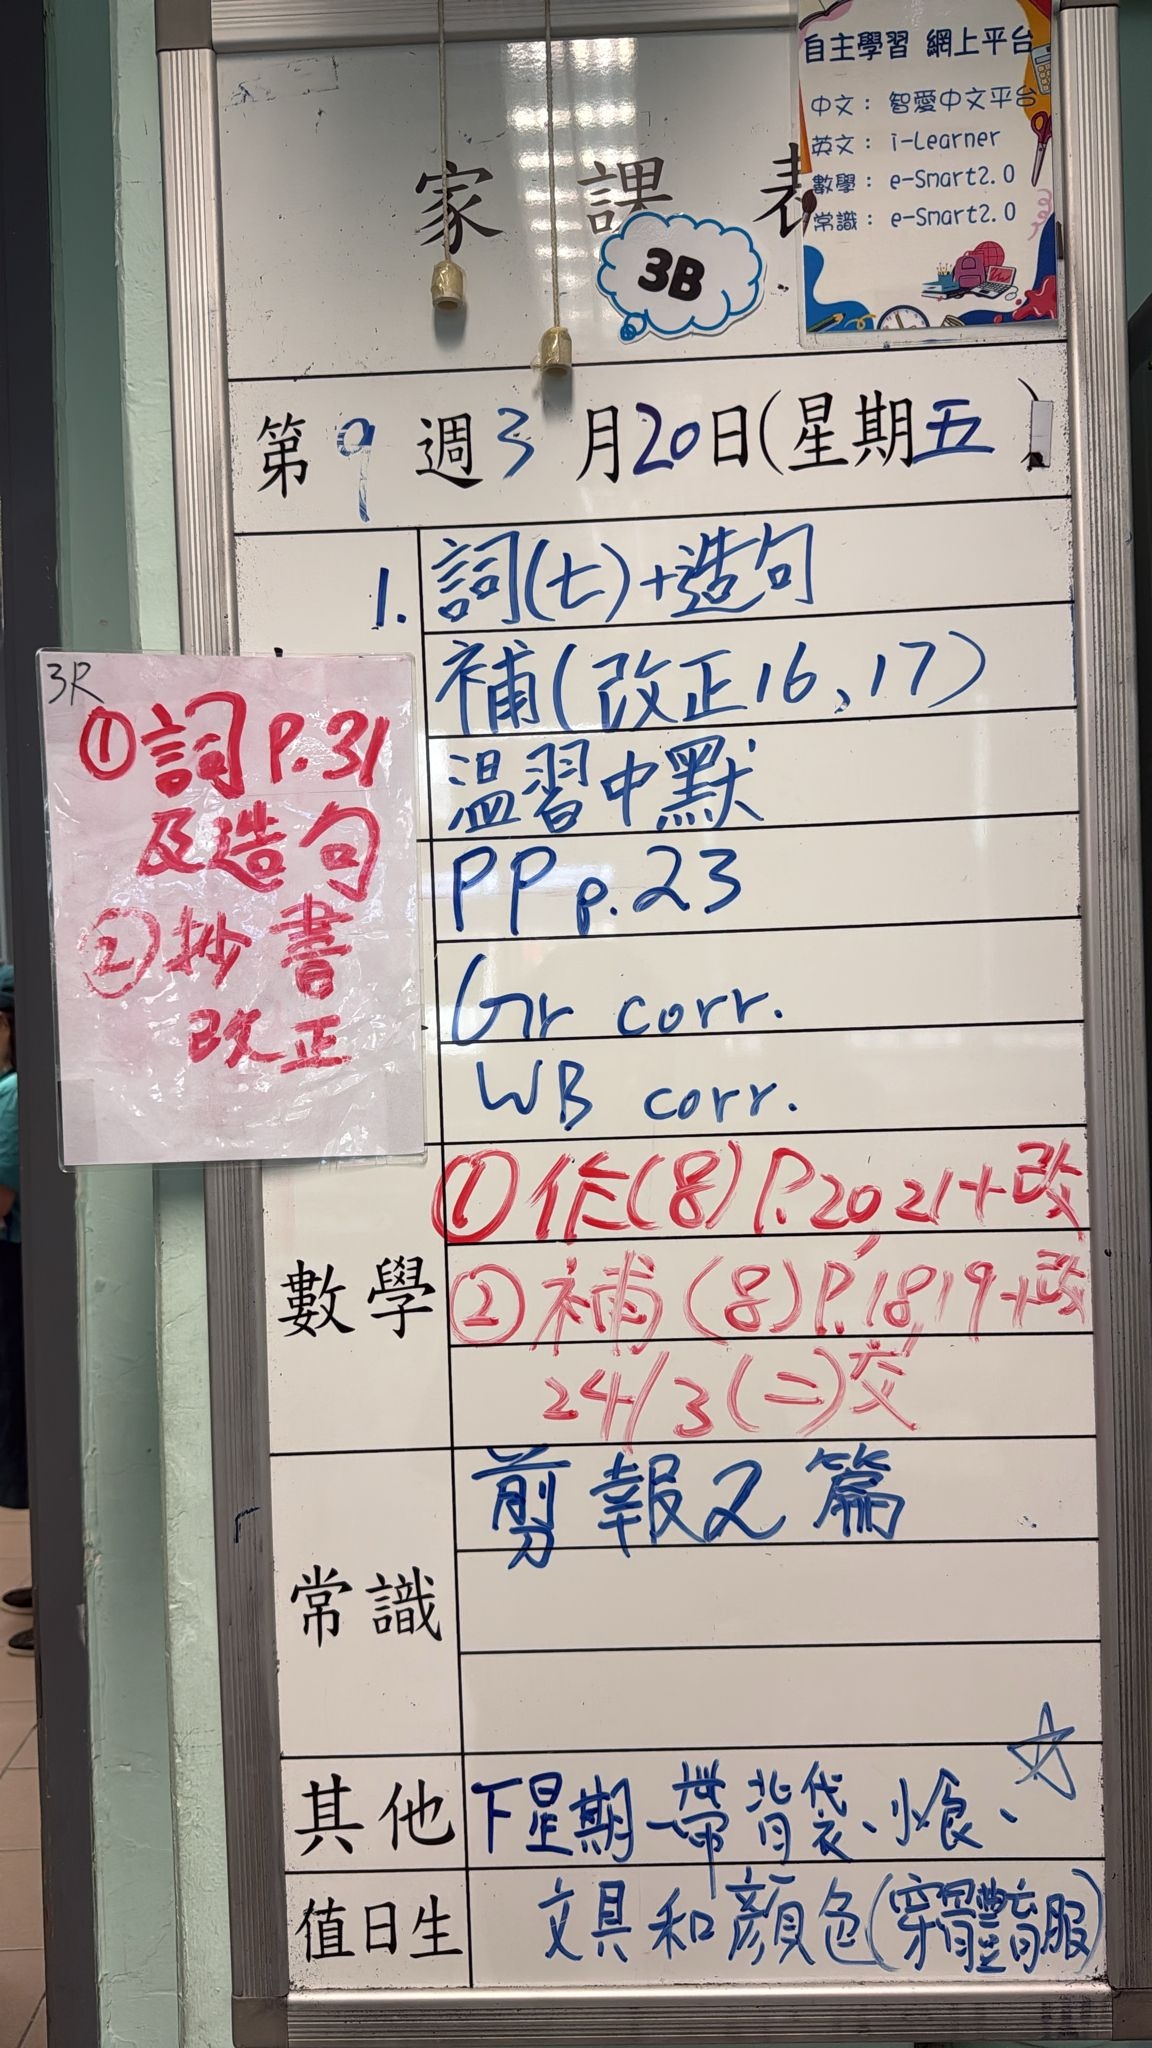 自主學習 網上平台
中文：智愛中文平台
英文：i-Learner
數學：e-Smart2.0
常識：e-Smart2.0
家課表
3B
第9週3月20日(星期五)
1. 詞(七)+造句
補(改正16、17)
溫習中默
PP p.23
Gr corr.
WB corr.
3R
①詞P.31
及造句
②抄書
改正
數學
①作(8)P.20,21+改
②補(8)P.18,19+改
24/3(二)交
常識
剪報2篇
其他
下星期一帶背袋、小食、
值日生
文具和顏色(穿體育服)